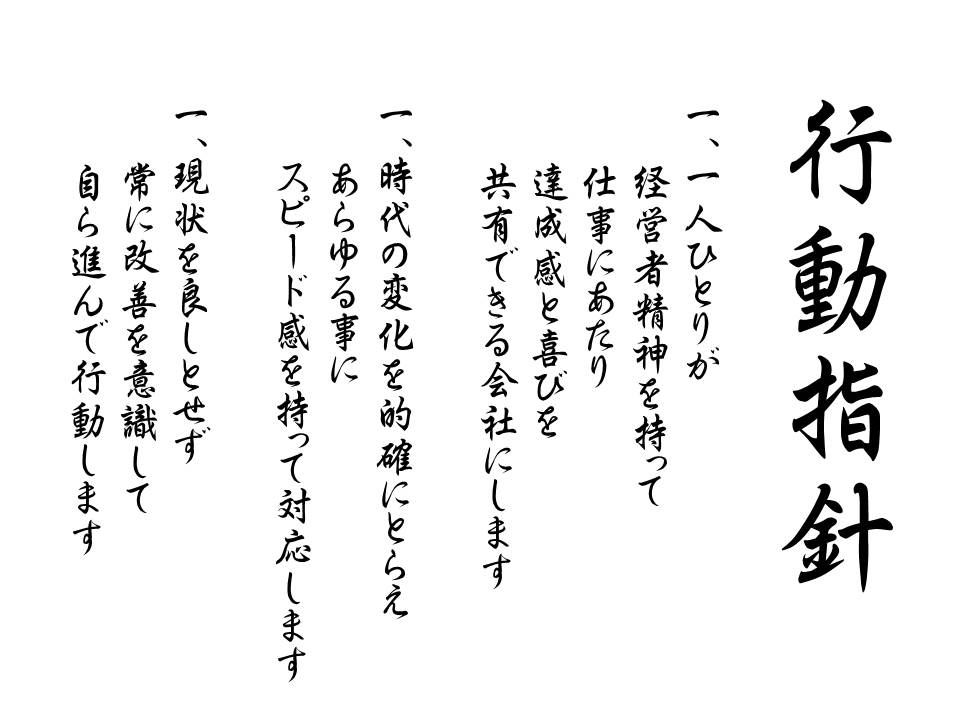 行動指針
一、一人ひとりが
経営者精神を持って
仕事にあたり
達成感と喜びを
共有できる会社にします
一、時代の変化を的確にとらえ
あらゆる事に
スピード感を持って対応します
一、現状を良しとせず
常に改善を意識して
自ら進んで行動します